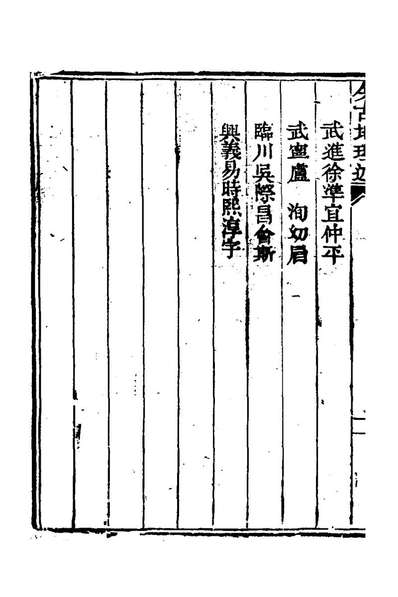 今古地理述
武進徐準宜仲平
武寧盧洵幼眉
臨川吳際昌會斯
興義易時熙淳宇